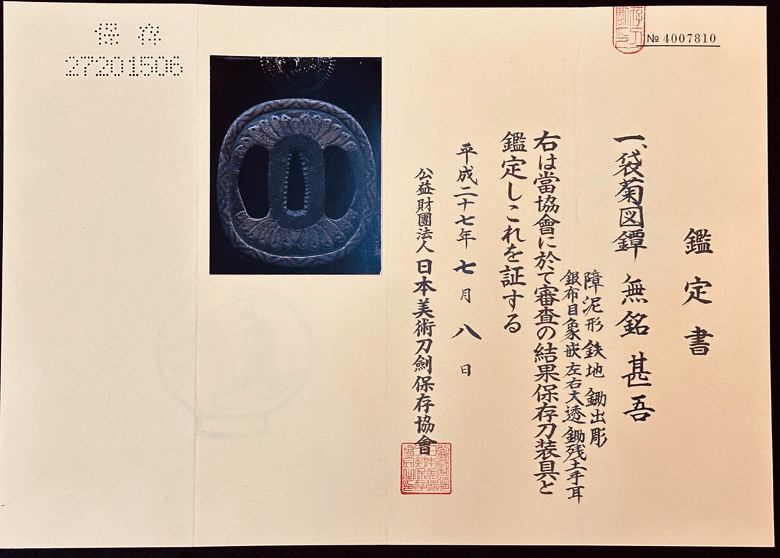 № 4007810
鑑定書
一、袋菊図鐔 無銘 甚吾
障泥形 鉄地 鋤出彫
銀布目象嵌 左右大透 鋤残土手耳
右は當協會に於て審査の結果保存刀装具と
鑑定しこれを証する
平成二十七年七月八日
公益財團法人 日本美術刀劍保存協會
保存
27201506